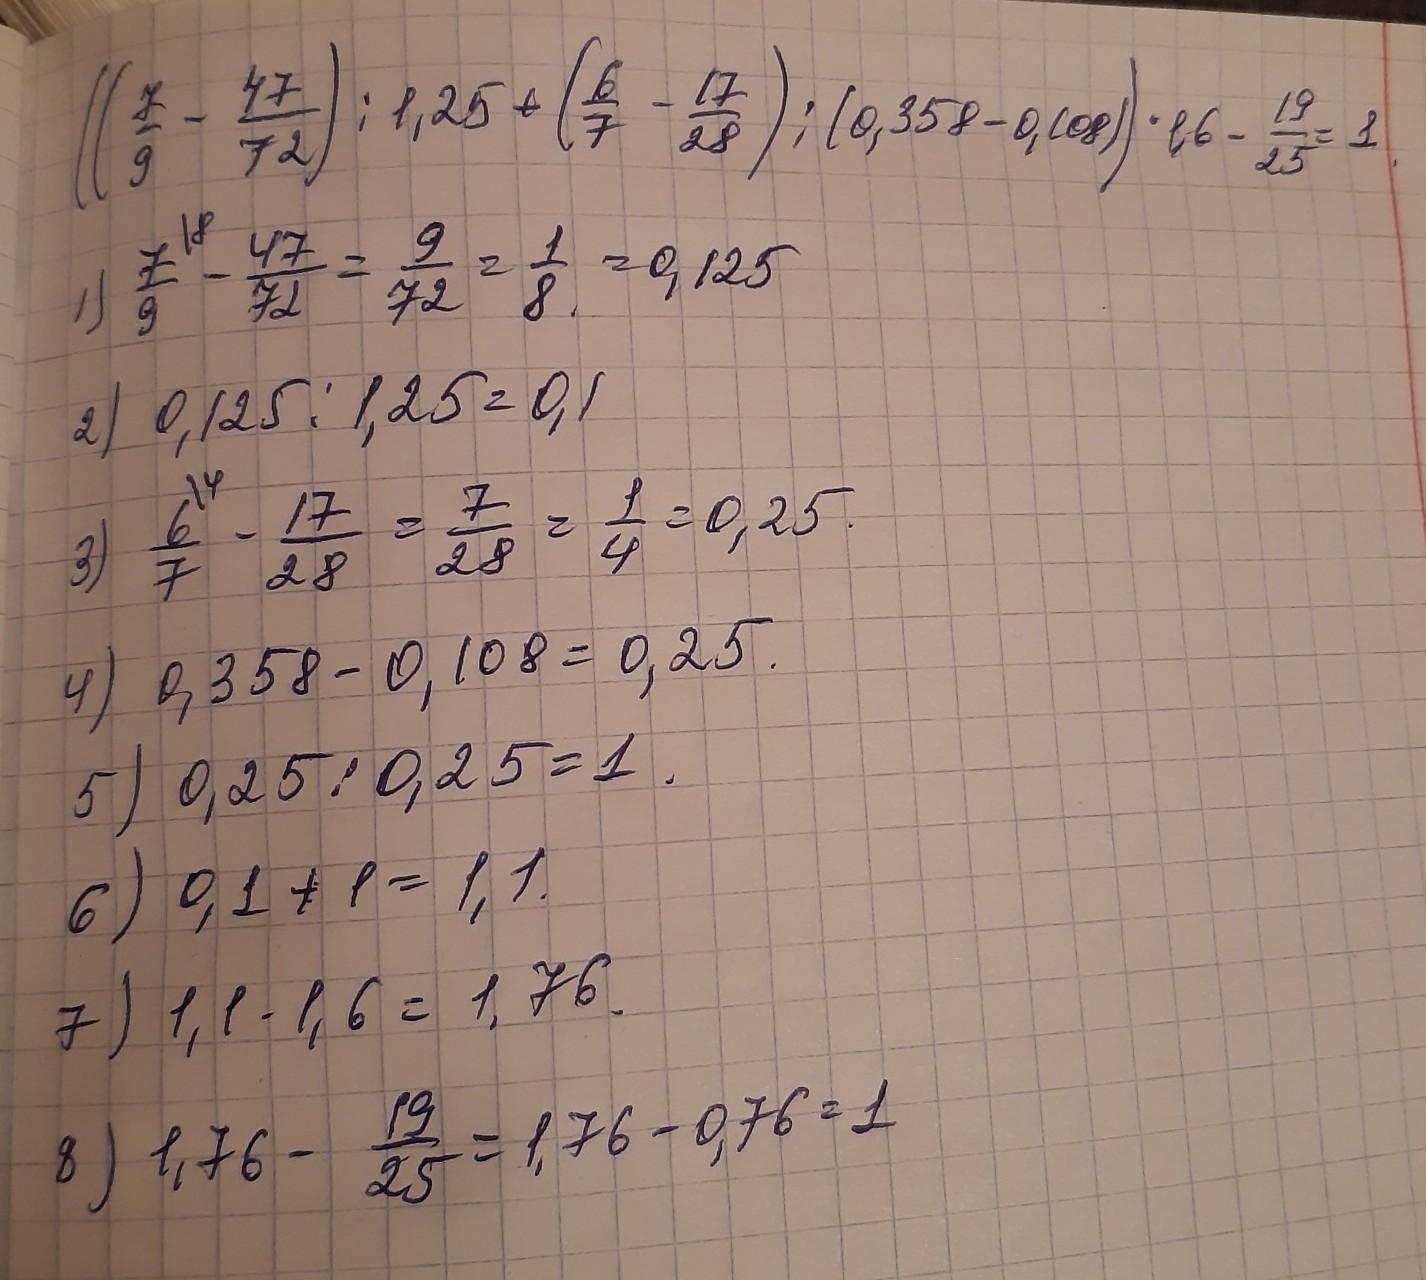 ((7/9 - 47/72) : 1,25 + (6/7 - 17/28) : (0,358 - 0,108)) · 1,6 - 19/25 = 1.
1) 7/9 \8 - 47/72 = 9/72 = 1/8. = 0,125
2) 0,125 : 1,25 = 0,1
3) 6/7 \4 - 17/28 = 7/28 = 1/4 = 0,25.
4) 0,358 - 0,108 = 0,25.
5) 0,25 : 0,25 = 1.
6) 0,1 + 1 = 1,1.
7) 1,1 · 1,6 = 1,76.
8) 1,76 - 19/25 = 1,76 - 0,76 = 1